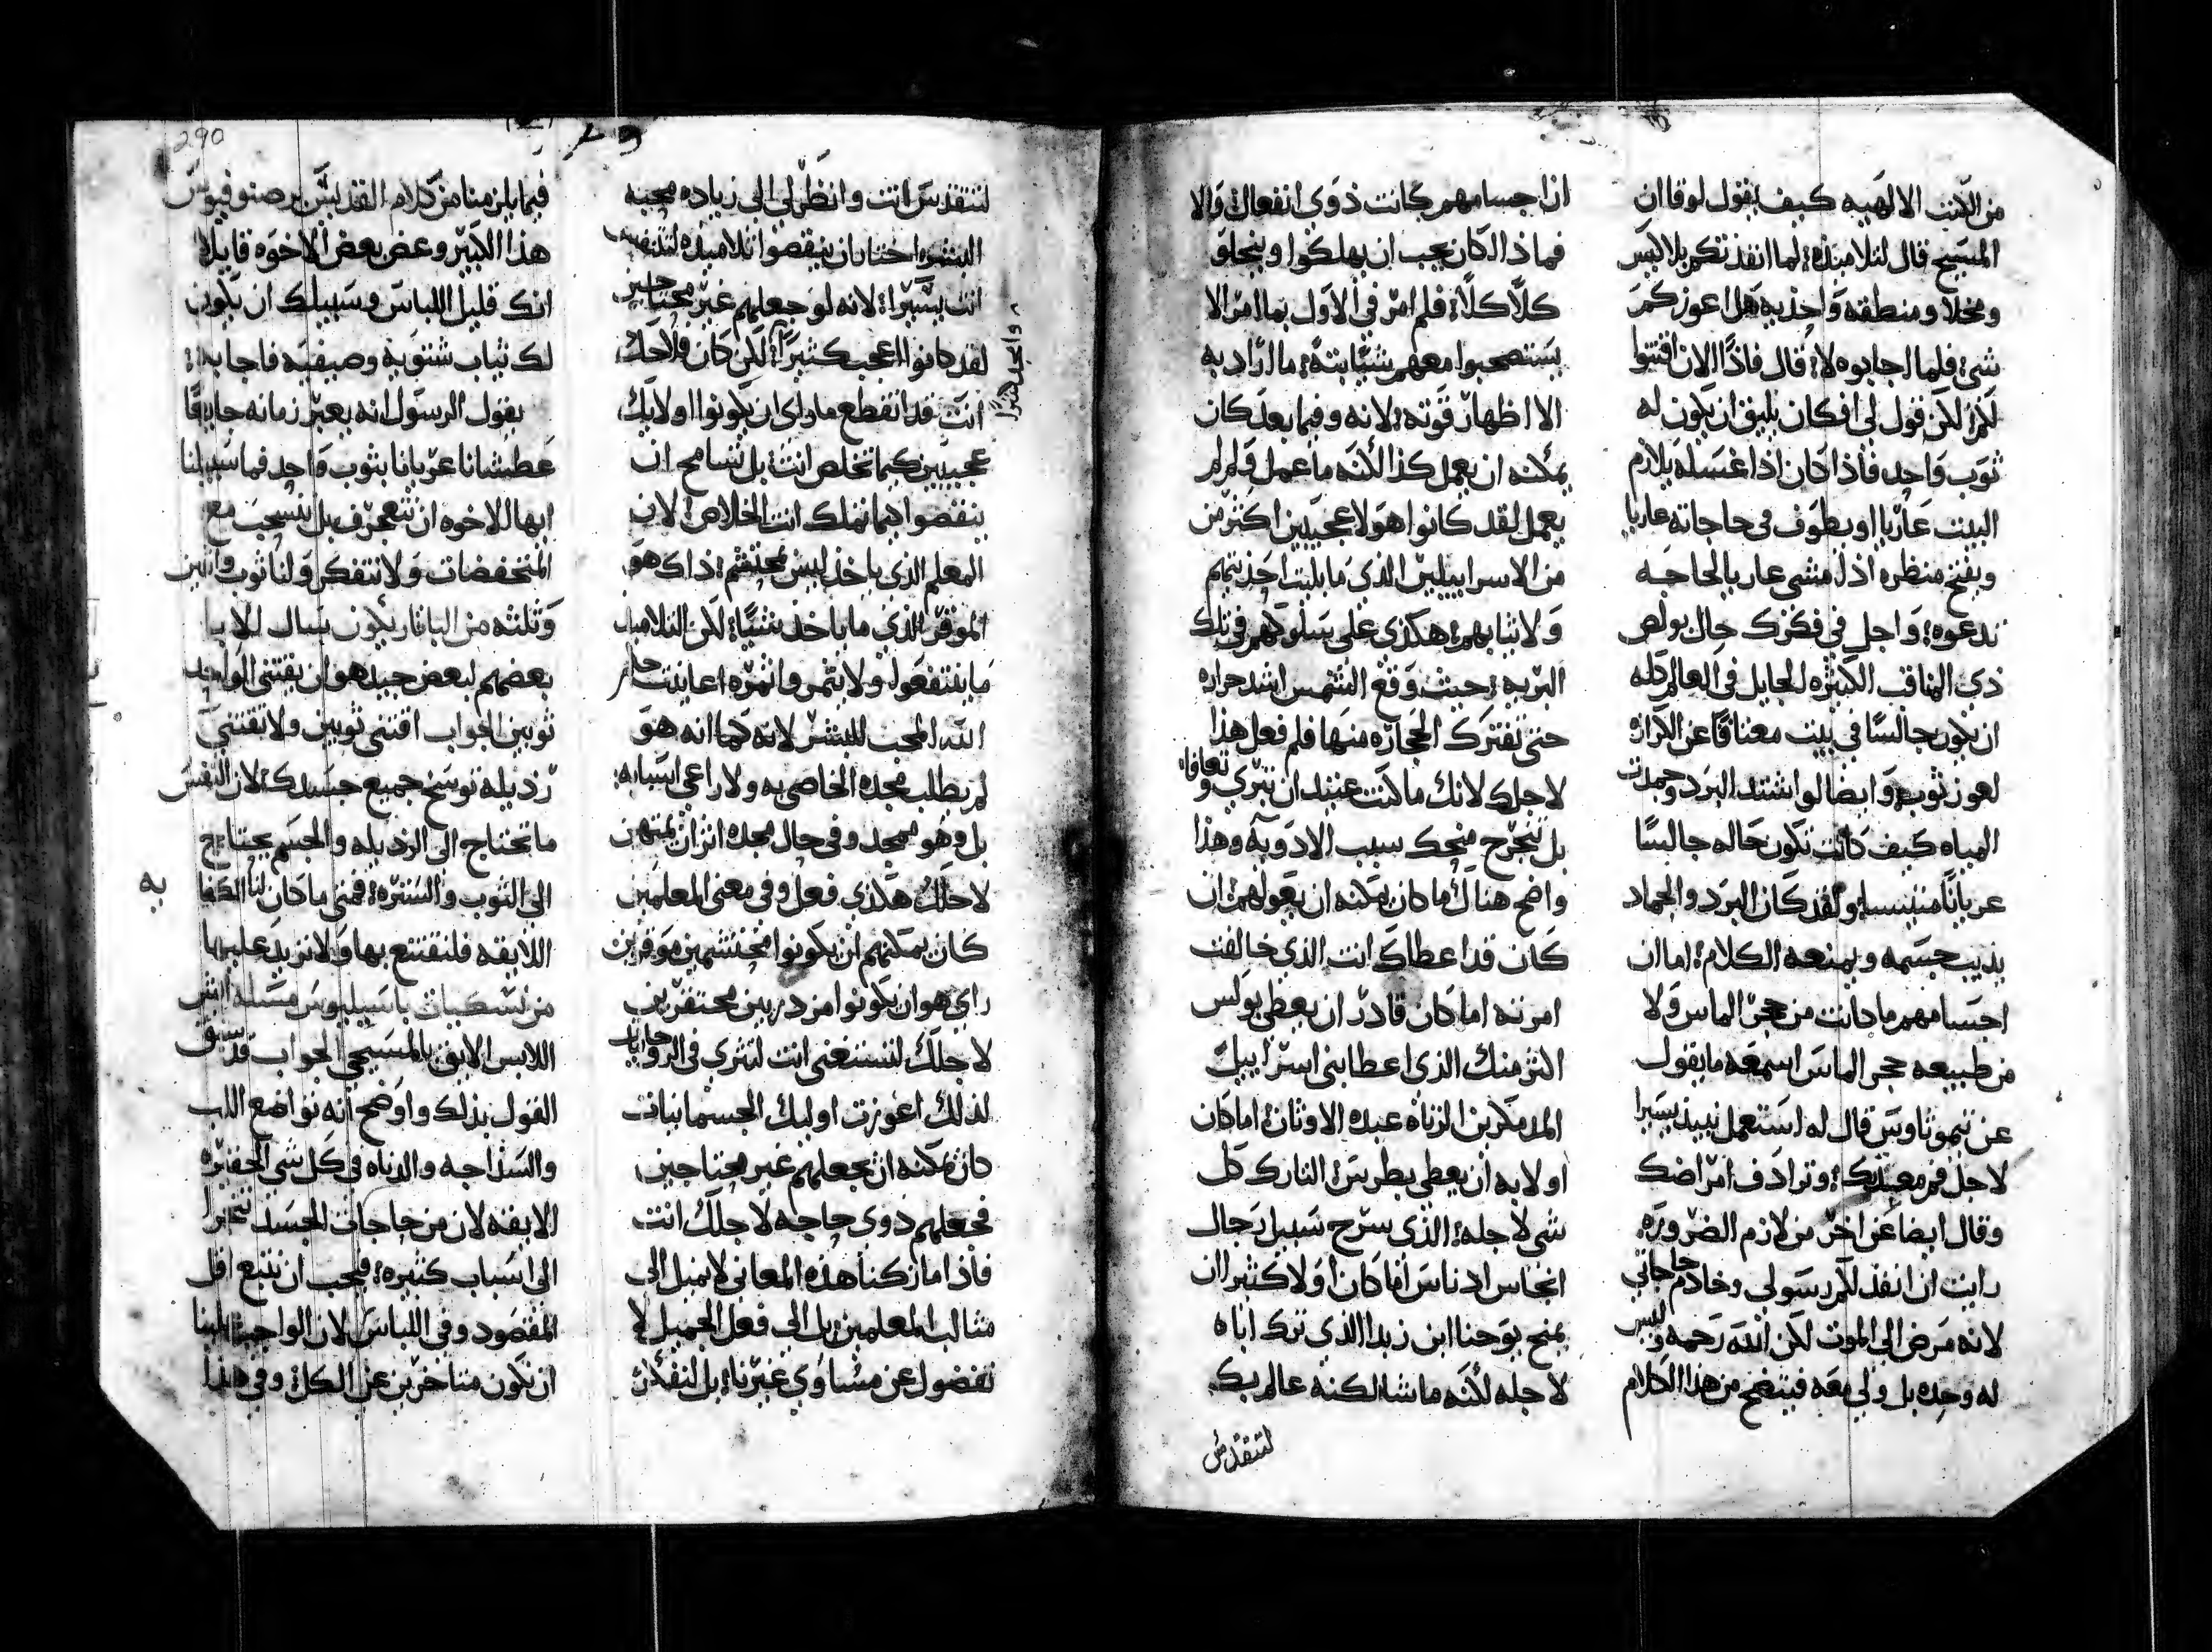 من الكتب الالهيه كيف يقول لوقا ان
المسيح قال لتلاميذه لما انفذتكم بلا كيس
ومخلا ومنطقه واحذيه هل اعوزكم
شي فلما اجابوه لا قال فاذا الان اقتنوا
لكم لكن قول لي افكان يليق ان يكون له
ثوب واحد فاذا كان اذا غسله يلازم
البيت عاريا او يطوف في حاجاته عاريا
ويفتح منظره اذا مشى عاريا لحاجه
تدعوه واجل في فكرك حال بولص
ذي المناقب الكثيره الجايل في العالم كله
ان يكون جالسا في بيت معتاقا عن الكرازه
لعوز ثوب وايضا لو اشتد البرد وجمدت
المياه كيف كانت تكون حاله جالسا
عريانا متيبسا ولقد كان البرد والجماد
يذيب جسمه ويمنعه الكلام اما ان
اجسامهم ما كانت من حجر الماس ولا
من طبيعه حجر الماس اسمعه ما يقول
عن تيموثاوس قال له استعمل نبيذ يسيرا
لاجل فم معدتك وترادف امراضك
وقال ايضا عن اخر من لازم الضروره
رايت ان انفذ لكم رسولي وخادم حاجاتي
لانه مرض الى الموت لكن الله رحمه وليس
له وحده بل ولي معه فيتضح من هذا الكلام
ان اجسامهم كانت ذوي انفعال والا
فماذا لكان يجب ان يهلكوا وينحلوا
كلا كلا فلم امر في الاول بما امر الا
يستصحبوا معهم شيا بتة ما اراد به
الا اظهار قوته لانه وفيما بعد كان
يمكنه ان يعمل كذا لكنه ما عمل ولم لم
يعمل لقد كانوا هولا عجيبين اكثر من
من الاسراييليين الذي ما بليت احذيتهم
ولا ثيابهم هكذي على سلوكهم في تلك
البريه حيث وقع الشمس اشد حراره
حتى تفترك الحجاره منها فلم فعل هذا
لاجلك لانك ما كنت عتيد ان تبري وتعافا
بل تنجرح منحك سبب الادويه وهذا
واضح هناك ما كان يمكنه ان يعولهم ان
كان قد اعطاك انت الذي خالفت
امرته اما كان قادر ان يعطي بولس
اكثر منك الذي اعطا بني اسراييل
المدمدمين الزناه عبده الاوثان اما كان
اولابه ان يعطي بطرس التارك كل
شي لاجله الذي سرح سبيل رجال
انجاس ادناس اما كان اولا كثيرا ان
يمنح يوحنا ابن زبدا الذي ترك اباه
لاجله لكنه ما شا لكنه عالم بك
لتتقدس
لتتقدس انت وانظر لي الى زياده محبه
البشر اختار ان ينقصوا تلاميذه لتتنفس
انت يسيرا لانه لو جعلهم غير محتاجين
لقد كانوا اعجب كثيرا لكن كان خلاصك
انت قد انقطع ماراى ان يكونوا اوليك
عجيبين كيما تخلص انت بل تسامح ان
ينقصوا كيما تملك انت الخلاص لان
المعلم الذي ياخذ ليس محتشم ذاك هو
الموقر الذي ما ياخذ شيا لكن التلاميذ
ما ينتفعوا ولا يثمر وا ثمره اعاينت حكم
الله المحب للبشر لانه كما انه هو
لم يطلب مجده الخاص به ولا راعى اسبابه
بل وهو ممجد وفي حال مجده اثر ان يمتهن
لاجلك هكذي فعل وفي معنى المعلمين
كان يمكنهم ان يكونوا محتشمين موقرين
راي هو ان يكونوا مزدريين محتقرين
لاجلك لتستغنى انت لتثري في الروحانيات
لذلك اعوزت اوليك الجسمانيات
كان يمكنه ان يجعلهم غير محتاجين
فجعلهم ذوي حاجه لاجلك انت
فاذا ما زكنا هذه المعاني لا نميل الى
مثالب المعلمين بل الى فعل الجميل لا
نفضول عن مساوي غيرنا بل لنفكر
واحد هنرا
290
فيما يلزمنا من كلام القديس برصنوفيوس
هذا الكبير وعض بعض الاخوه قايلا
انك قليل اللباس وسبيلك ان يكون
لك ثياب شتويه وصيفيه فاجابه
يقول الرسول انه يعبر زمانه جايعا
عطشانا عريانا بثوب واحد فما سبيلنا
ايها الاخوه ان نتعجرف بل ننسحب مع
المتخفضات ولا نتفكر ولنا ثوب واثنين
وثلثه من الباتار يكون سال الابا
بعضهم لبعض جيد هو ان يقتني الواحد
ثوبين الجواب اقتني ثوبين ولا تقتني
رذيله توسخ جميع جسدك لان النفس
ما تحتاج الى الرذيله والجسم يحتاج
الى الثوب والستره فمتى ما كان لنا الكفا به
اللايقه فلنقتنع بها ولا نزيد عليها
من نسكيات باسيليوس مسله ايش
اللابس الايق بالمسيحي الجواب قد سبق
القول بذلك واوضح انه تواضع اللب
والسذاجه والدناه في كل شي الحقيره
الايقه لان من حاجات الجسد نتجر
الى اسباب كثيره فيجب ان نتبع اقل
المقصود وفي اللباس لان الواجب علينا
ان نكون متاخرين عن الكل وفي هذا